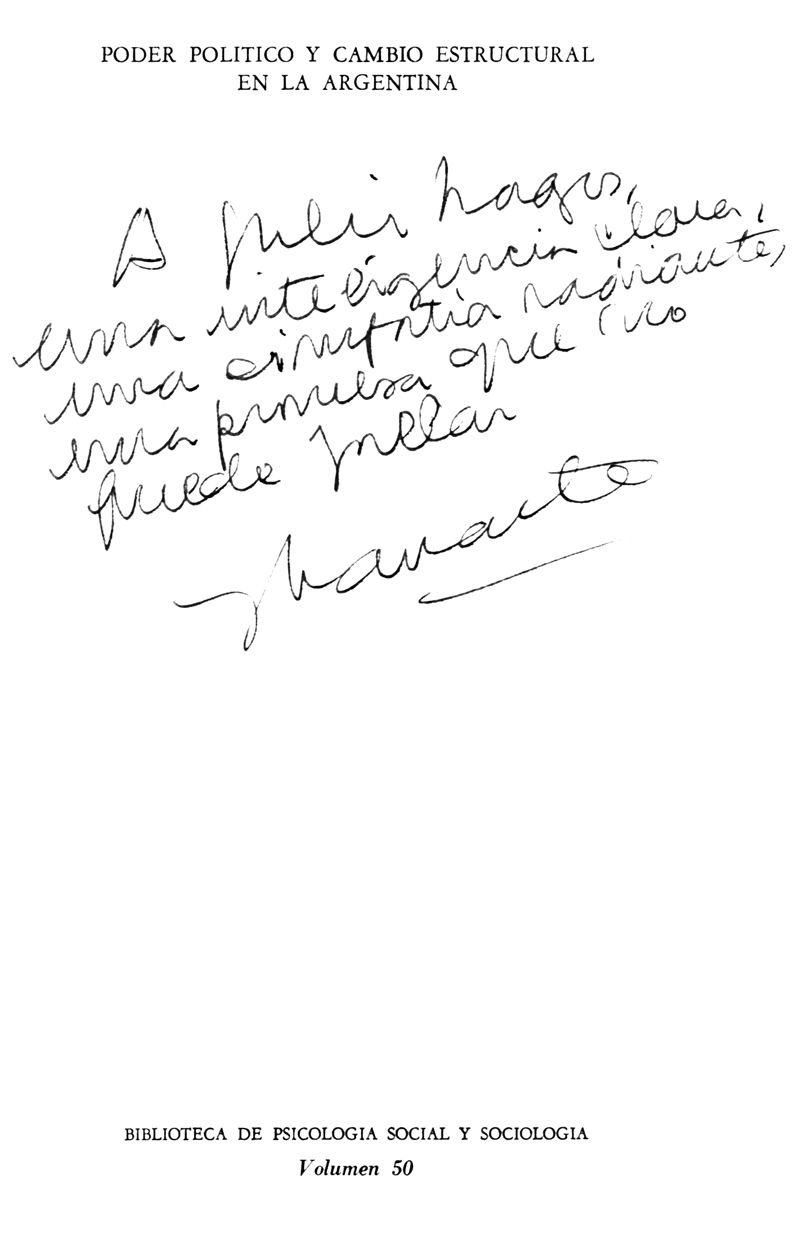 PODER POLITICO Y CAMBIO ESTRUCTURAL
EN LA ARGENTINA
A Julio Lagos,
una inteligencia clara,
una simpatía radiante,
una promesa que no
puede fallar
BIBLIOTECA DE PSICOLOGIA SOCIAL Y SOCIOLOGIA
Volumen 50